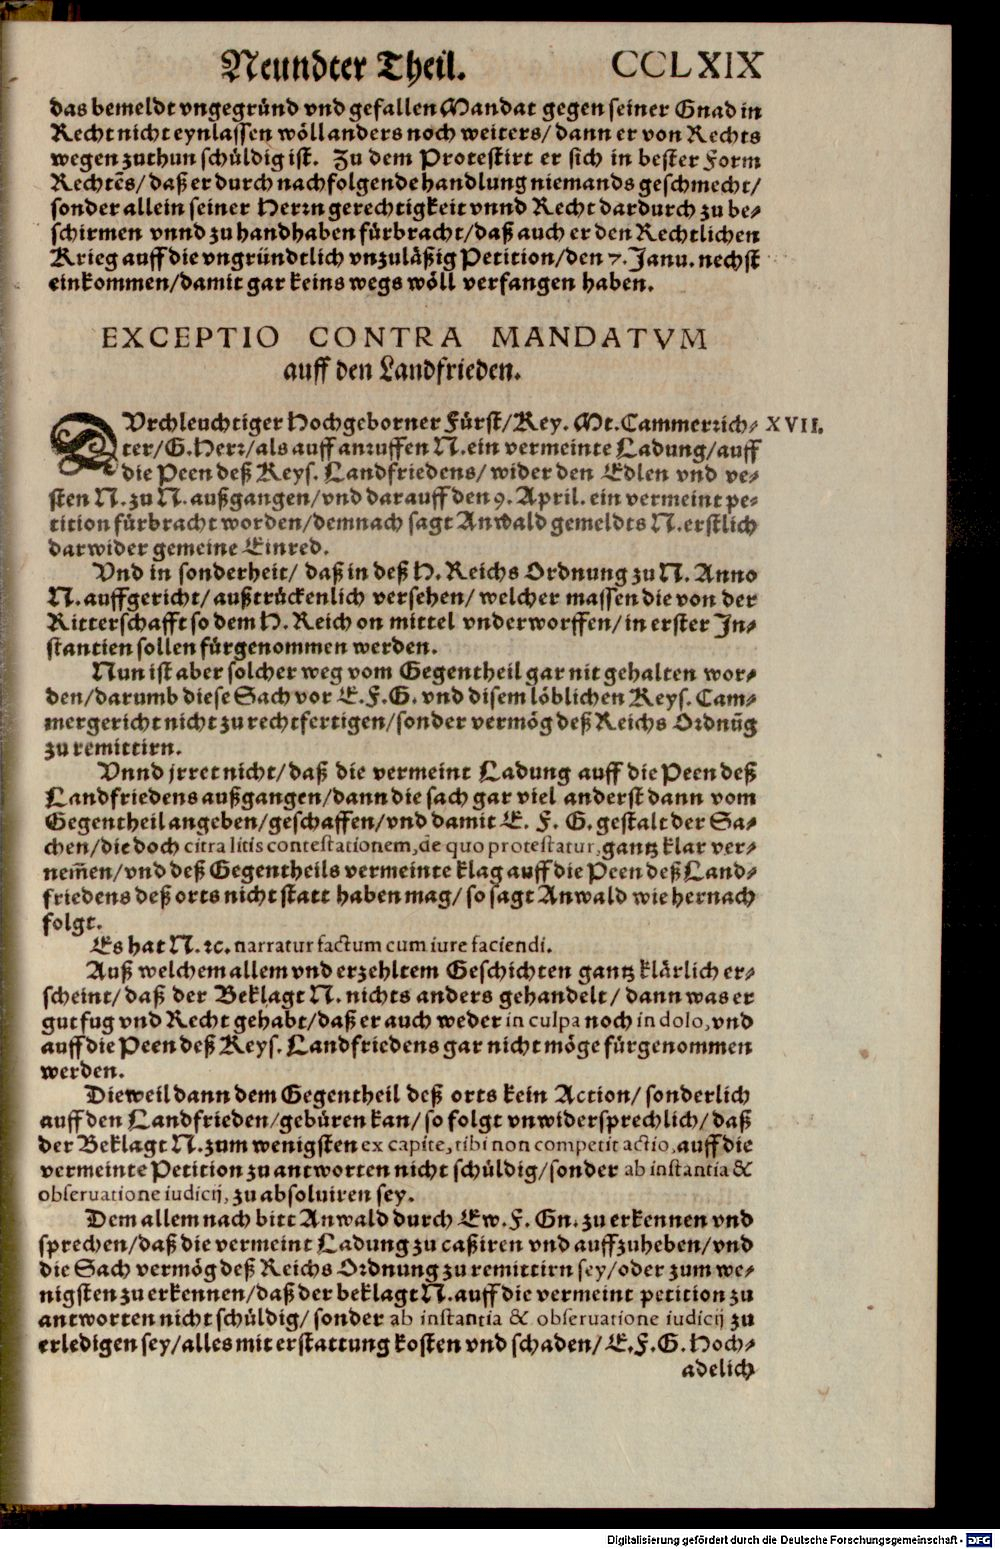 Neundter Theil. CCLXIX
das bemeldt vngegründ vnd gefallen Mandat gegen seiner Gnad in
Recht nicht eynlassen wöll anders noch weiters/ dann er von Rechts
wegen zuthun schüldig ist. Zu dem Protestirt er sich in bester Form
Rechtēs/ daß er durch nachfolgende handlung niemands geschmecht/
sonder allein seiner Herrn gerechtigkeit vnnd Recht dardurch zu be-
schirmen vnnd zu handhaben fürbracht/ daß auch er den Rechtlichen
Krieg auff die vngründtlich vnzuläßig Petition/ den 7. Janu. nechst
einkommen/ damit gar keins wegs wöll verfangen haben.
EXCEPTIO CONTRA MANDATVM
auff den Landfrieden.
DVrchleuchtiger Hochgeborner Fürst/ Key. Mt. Cammerrich- XVII.
ter/ G. Herr/ als auff anruffen N. ein vermeinte Ladung/ auff
die Peen deß Keys. Landfriedens/ wider den Edlen vnd ve-
sten N. zu N. außgangen/ vnd darauff den 9. April. ein vermeint pe-
tition fürbracht worden/ demnach sagt Anwald gemeldts N. erstlich
darwider gemeine Einred.
Vnd in sonderheit/ daß in deß H. Reichs Ordnung zu N. Anno
N. auffgericht/ außtrückenlich versehen/ welcher massen die von der
Ritterschafft so dem H. Reich on mittel vnderworffen/ in erster In-
stantien sollen fürgenommen werden.
Nun ist aber solcher weg vom Gegentheil gar nit gehalten wor-
den/ darumb diese Sach vor E. F. G. vnd disem löblichen Keys. Cam-
mergericht nicht zu rechtfertigen/ sonder vermög deß Reichs Ordnūg
zu remittirn.
Vnnd jrret nicht/ daß die vermeint Ladung auff die Peen deß
Landfriedens außgangen/ dann die sach gar viel anderst dann vom
Gegentheil angeben/ geschaffen/ vnd damit E. F. G. gestalt der Sa-
chen/ die doch citra litis contestationem, de quo protestatur, gantz klar ver-
nem̄en/ vnd deß Gegentheils vermeinte klag auff die Peen deß Land-
friedens deß orts nicht statt haben mag/ so sagt Anwald wie hernach
folgt.
Es hat N. ꝛc. narratur factum cum iure faciendi.
Auß welchem allem vnd erzehltem Geschichten gantz klärlich er-
scheint/ daß der Beklagt N. nichts anders gehandelt/ dann was er
gut fug vnd Recht gehabt/ daß er auch weder in culpa noch in dolo, vnd
auff die Peen deß Keys. Landfriedens gar nicht möge fürgenommen
werden.
Dieweil dann dem Gegentheil deß orts kein Action/ sonderlich
auff den Landfrieden/ gebüren kan/ so folgt vnwidersprechlich/ daß
der Beklagt N. zum wenigsten ex capite, tibi non competit actio, auff die
vermeinte Petition zu antworten nicht schüldig/ sonder ab instantia &
obseruatione iudicij, zu absoluiren sey.
Dem allem nach bitt Anwald durch Ew. F. Gn. zu erkennen vnd
sprechen/ daß die vermeint Ladung zu caßiren vnd auffzuheben/ vnd
die Sach vermög deß Reichs Ordnung zu remittirn sey/ oder zum we-
nigsten zu erkennen/ daß der beklagt N. auff die vermeint petition zu
antworten nicht schüldig/ sonder ab instantia & obseruatione iudicij zu
erledigen sey/ alles mit erstattung kosten vnd schaden/ E. F. G. Hoch-
adelich
Digitalisierung gefördert durch die Deutsche Forschungsgemeinschaft - DFG